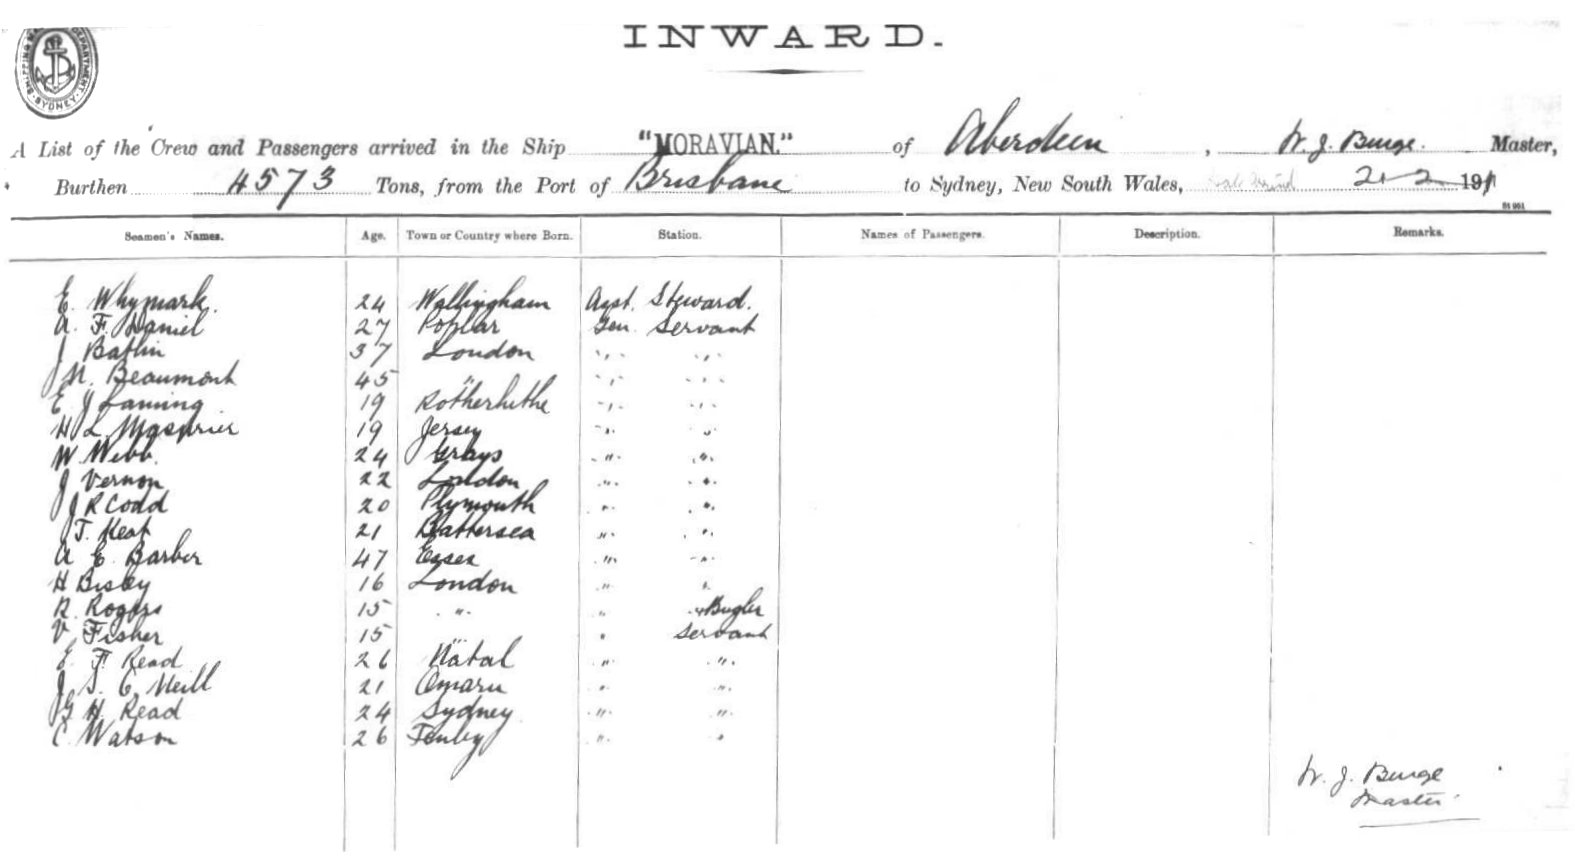 INWARD.
SHIPPING DEPARTMENT SYDNEY
A List of the Crew and Passengers arrived in the Ship "MORAVIAN." of Aberdeen, W. J. Burge. Master,
Burthen 4573 Tons, from the Port of Brisbane to Sydney, New South Wales, 21-2 1911
51 951
Seamen's Names. Age. Town or Country where Born. Station. Names of Passengers. Description. Remarks.
E. Whymark. 24 Wallingham Asst. Steward.
A. F. Daniel 27 Poplar Gen. Servant
J Batlin 37 London " "
J M. Beaumont 45 " " "
E J Laming 19 Rotherhithe " "
H L. 19 Jersey " "
W. Webb. 24 Grays " "
J Vernon 22 London " "
J R Codd 20 Plymouth " "
J T. Keat 21 Battersea " "
A E. Barber 47 Essex " "
H Bisley 16 London " "
R. Rogers 15 " " " Bugler
V Fisher 15 " " Servant
E. F. Read 26 Natal " "
J. S. C. Neill 21 Omaru " "
G H. Read 24 Sydney " "
C. Watson 26 Tenby " "
W. J. Burge
Master